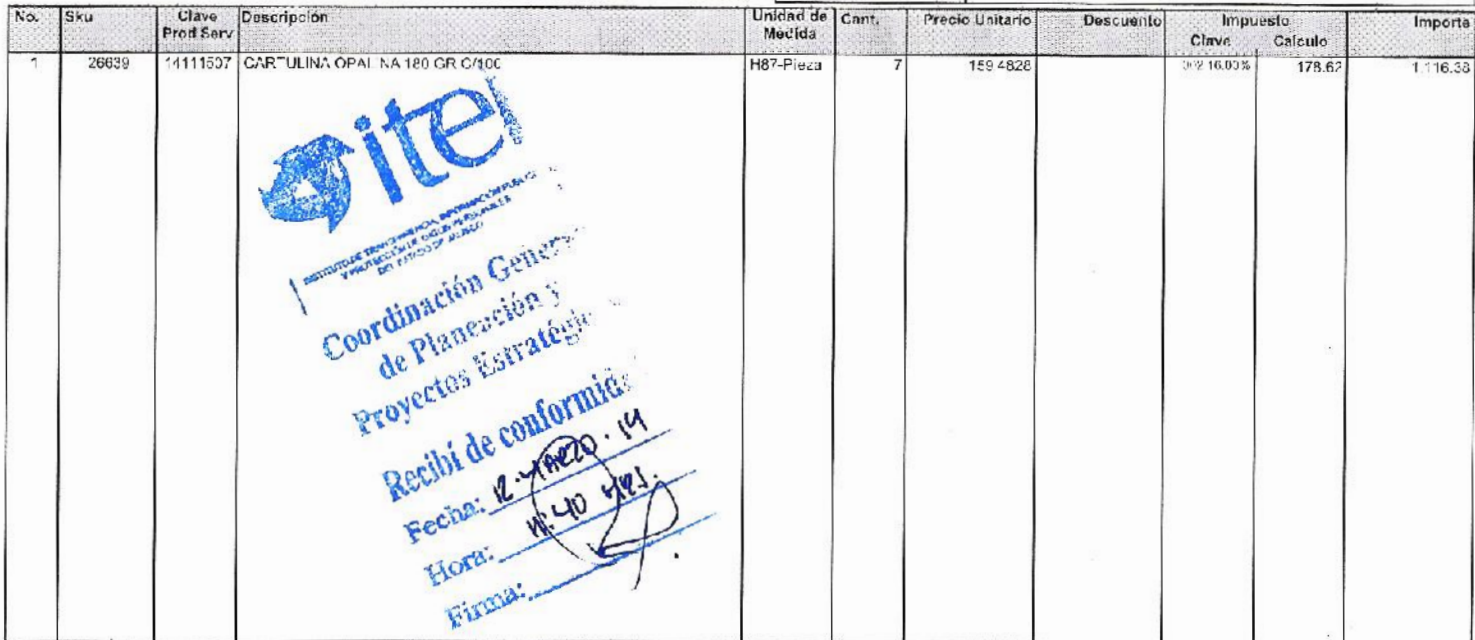 No. Sku Clave Prod Serv Descripción Unidad de Medida Cant. Precio Unitario Descuento Impuesto Clave Calculo Importe
1 26639 14111507 CARTULINA OPALINA 180 GR C/100 H87-Pieza 7 159.4828 002 16.00% 178.62 1,116.38
itei
INSTITUTO DE TRANSPARENCIA, INFORMACIÓN PÚBLICA
Y PROTECCIÓN DE DATOS PERSONALES
DEL ESTADO DE JALISCO
Coordinación General
de Planeación y
Proyectos Estratégicos
Recibí de conformidad
Fecha: 12·MARZO·19
Hora: 11:40 HRS.
Firma: